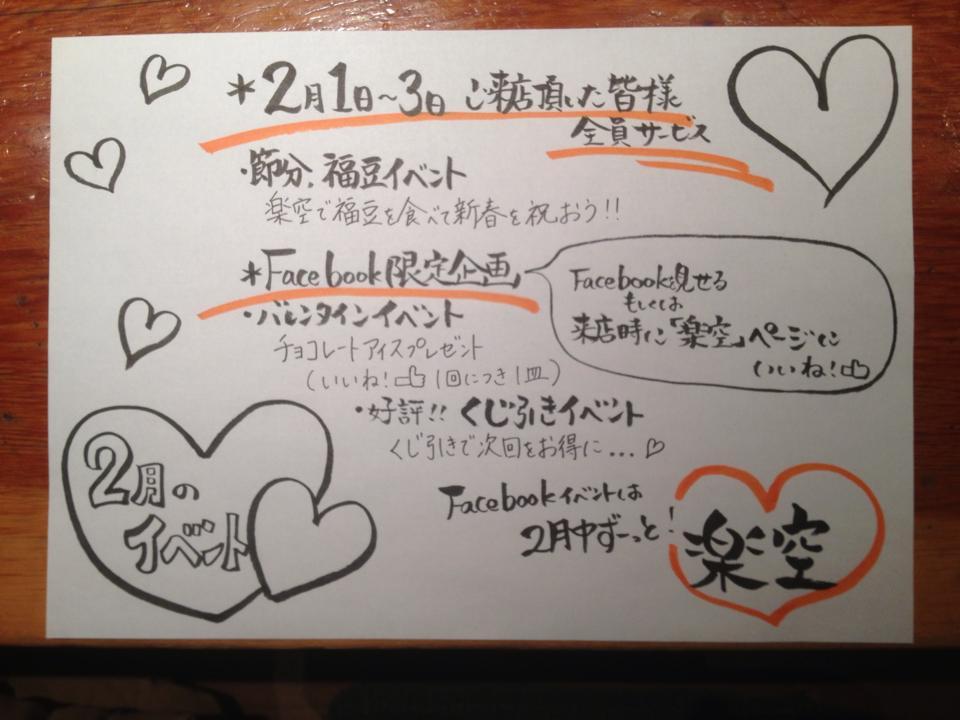 ＊2月1日～3日 ご来店頂いた皆様
全員サービス
・節分、福豆イベント
楽空で福豆を食べて新春を祝おう!!
＊Facebook限定企画
Facebookを見せる
もしくは
来店時に「楽空」ページに
いいね!
・バレンタインイベント
チョコレートアイスプレゼント
(いいね! 1回につき1皿)
・好評!! くじ引きイベント
くじ引きで次回をお得に...♡
2月の
イベント
Facebookイベントは
2月中ずーっと!
楽空